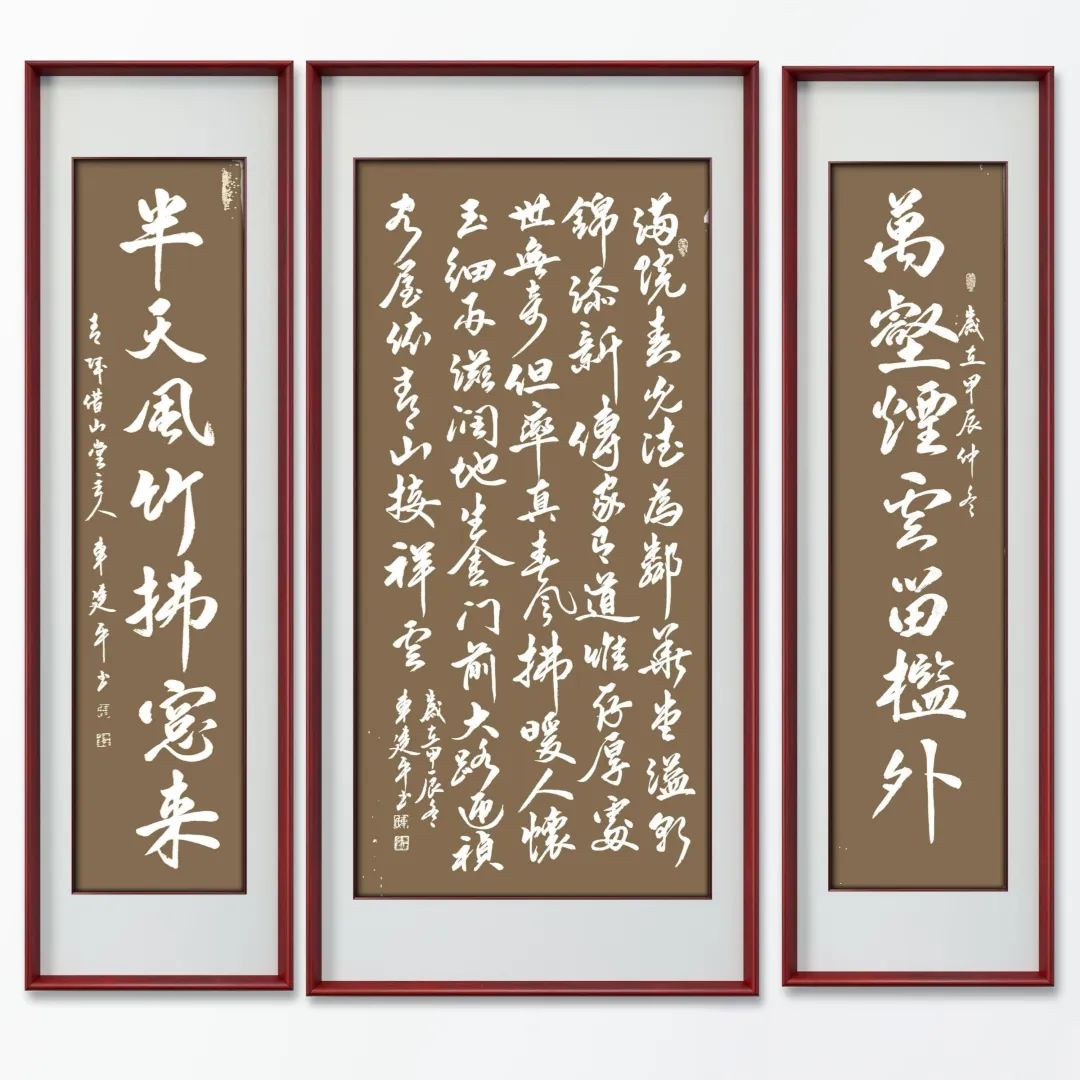 萬壑煙雲留檻外
歲在甲辰仲冬
滿院春光德為鄰華堂溢彩
錦添新傳家有道惟存厚處
世無奇但率真春風拂暖人懷
玉細雨滋潤地生金门前大路迎禎
吉屋依青山接祥雲
歲在甲辰冬
車建平书
半天風竹拂窗来
借山堂主人 車建平书